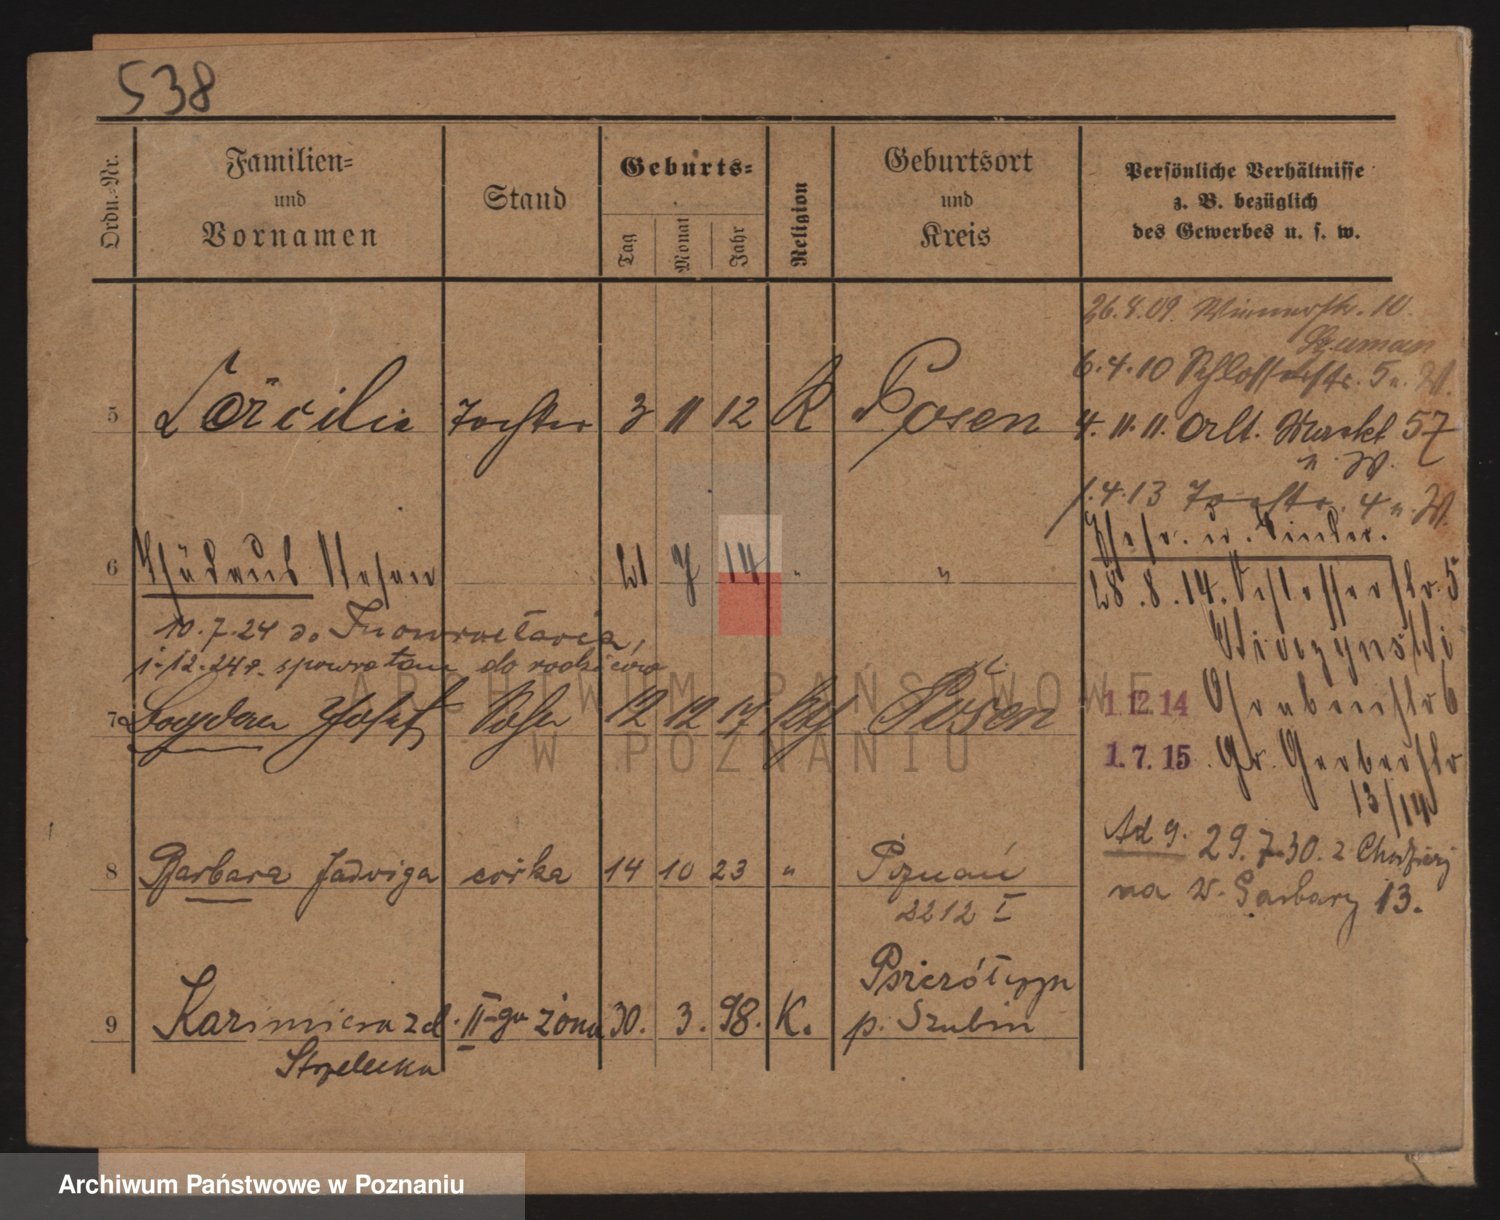 538
Ordn.-Nr.
Familien-
und
Vornamen
Stand
Geburts-
Tag
Monat
Jahr
Religion
Geburtsort
und
Kreis
Persönliche Verhältnisse
z. B. bezüglich
des Gewerbes u. s. w.
26.8.09. Wienerstr. 10.
6.4.10 Schlosserstr. 5 u. W.
5 Cäcilie Tochter 3 11 12 K Posen
4.11.11. Alt. Markt 57
u. W.
1.4.13 4 u. W.
6 21 7 14 " "
28.8.14. Schlosserstr. 5
10.7.24 do Inowrocławia,
1.12.24 r. spowrotem do rodziców
7 Bogdan Josef Sohn 12 12 17 Posen
1.12.14 Grabenstr. 6
1.7.15 Gr. Gerberstr
13/14
8 Barbara Jadwiga córka 14 10 23 " Poznań
2212 I
Ad 9. 29.7.30. z Chodzieży
na W. Garbary 13.
9 Kazimiera z d. II-ga żona 30. 3. 98. K.
Strzelecka
p. Szubin
ARCHIWUM PAŃSTWOWE
W POZNANIU
Archiwum Państwowe w Poznaniu